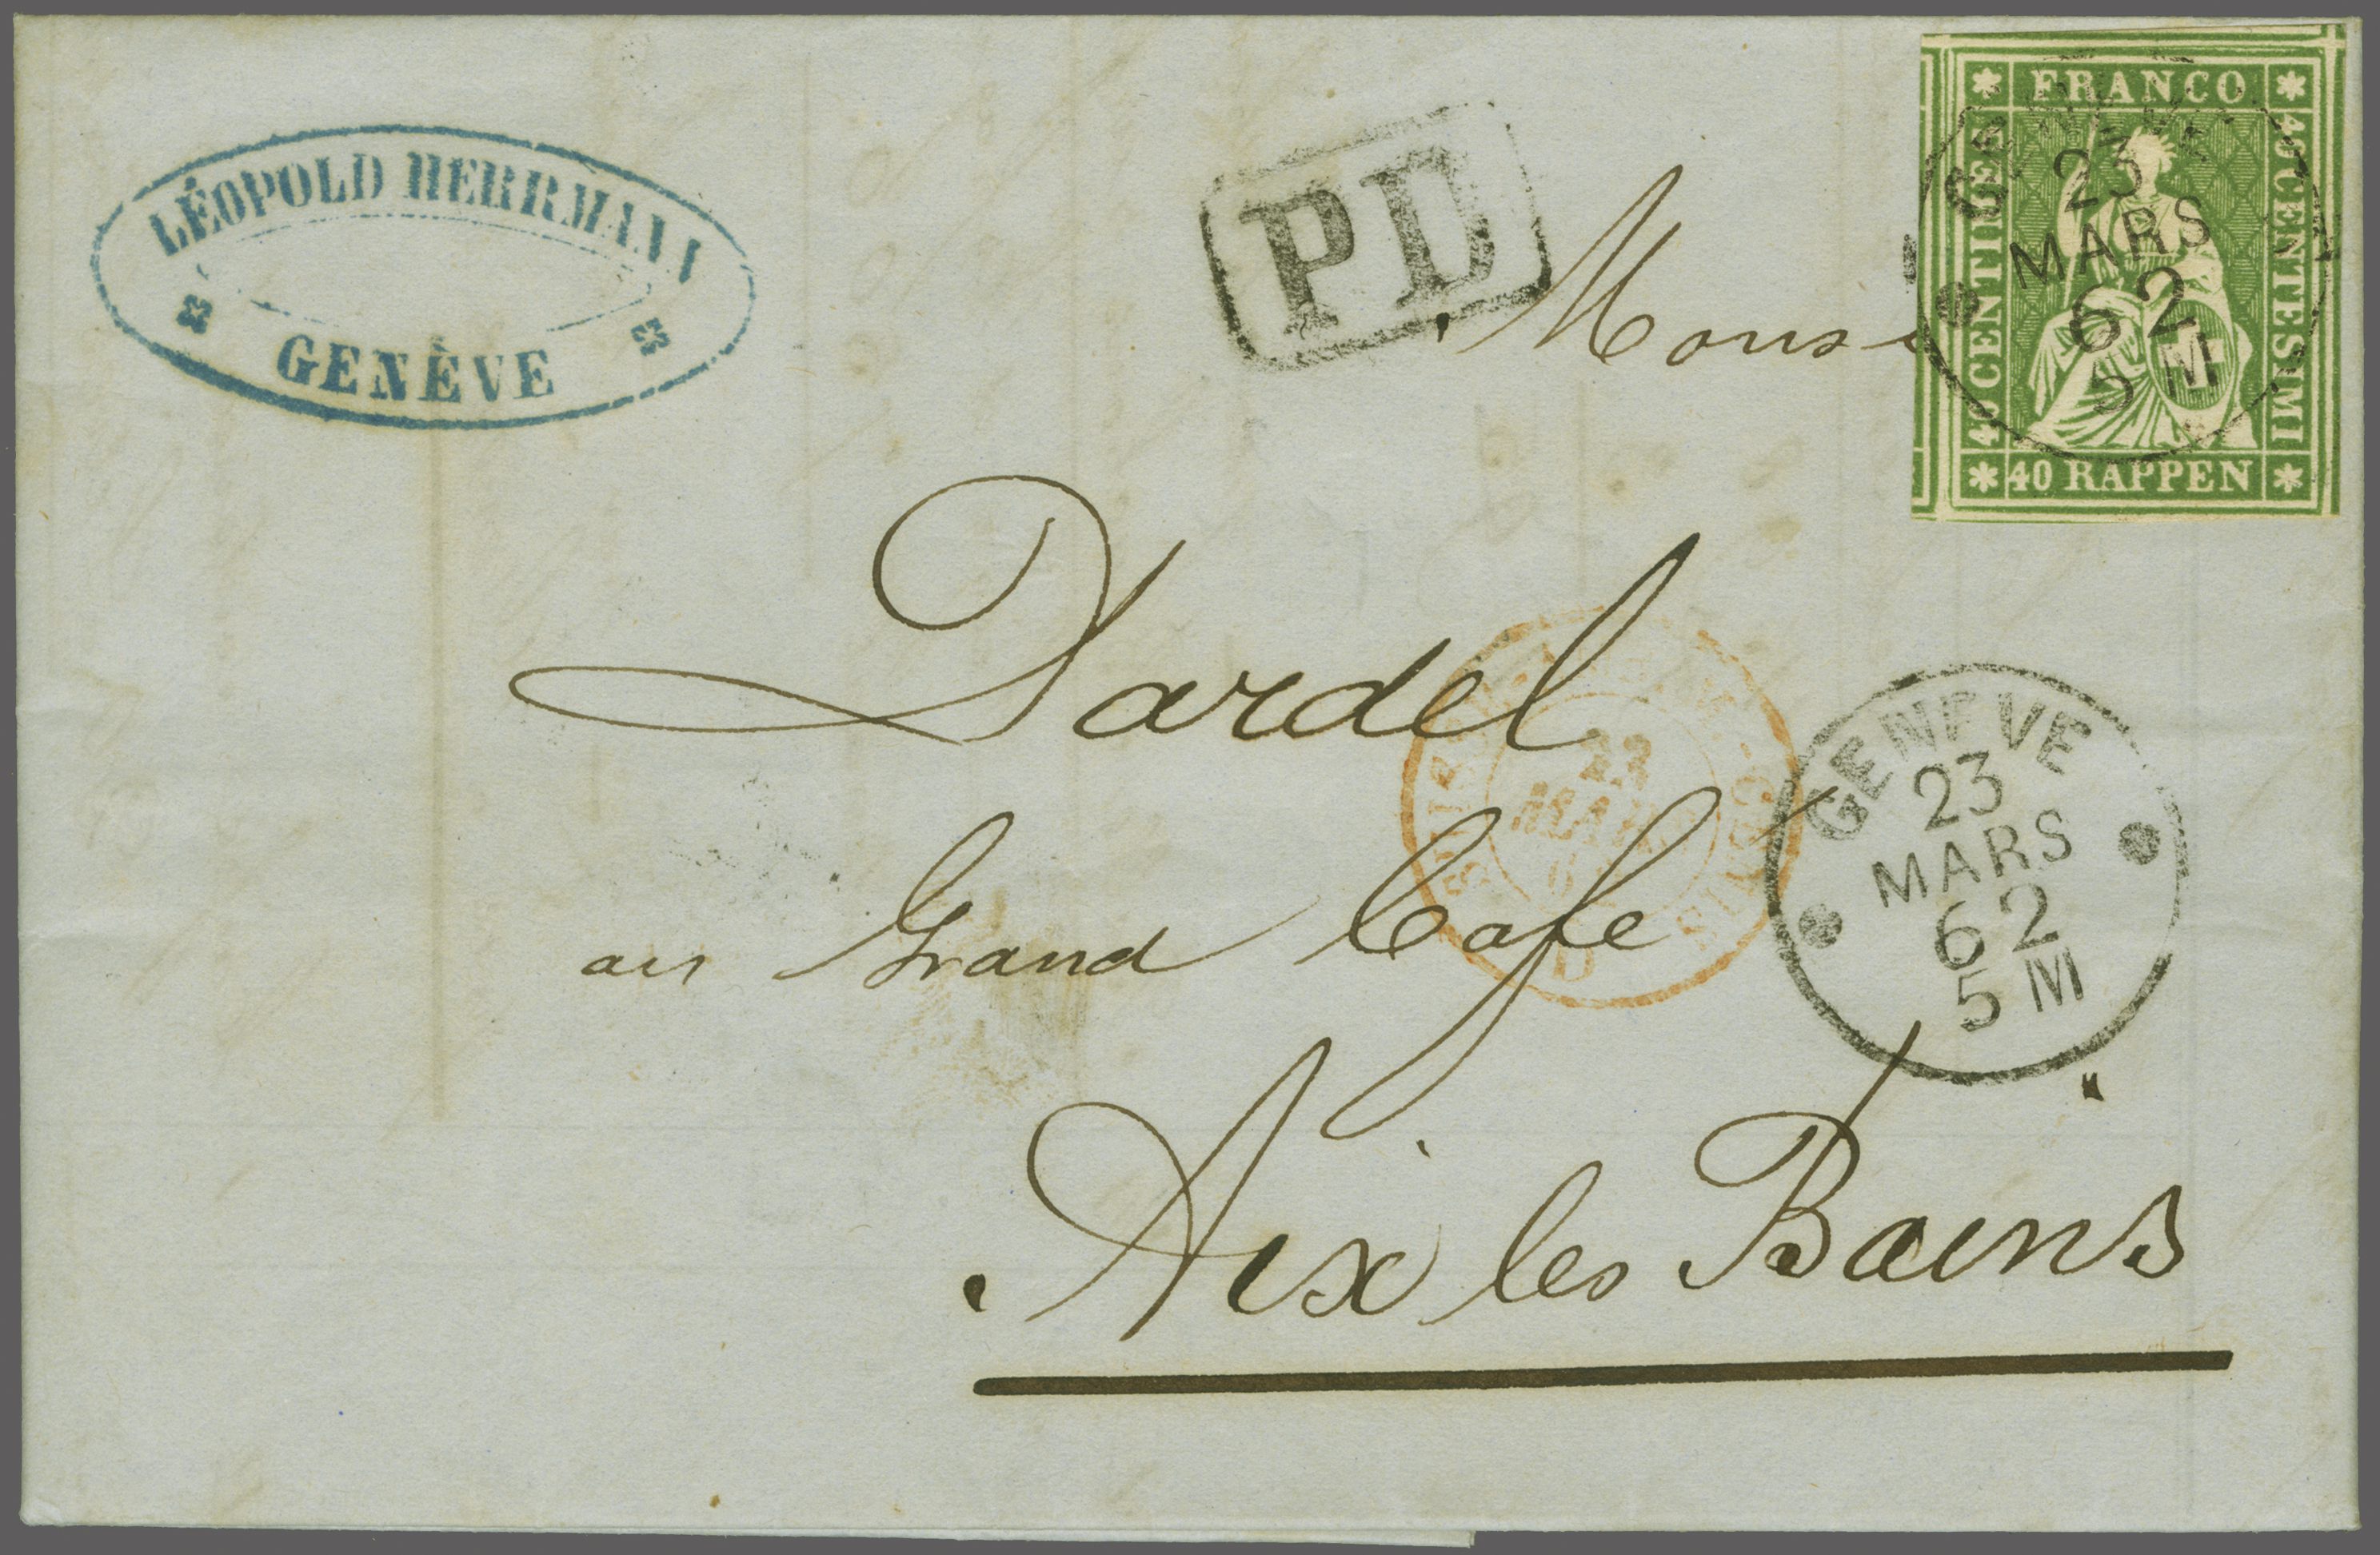 LÉOPOLD HERRMANN
GENÈVE
PD
FRANCO
40 CENTIMES
40 CENTESIMI
40 RAPPEN
GENÈVE
23
MARS
62
5 M
Dardel
au Grand Cafe
Aix les Bains
GENEVE
23
MARS
62
5 M
MARS
D